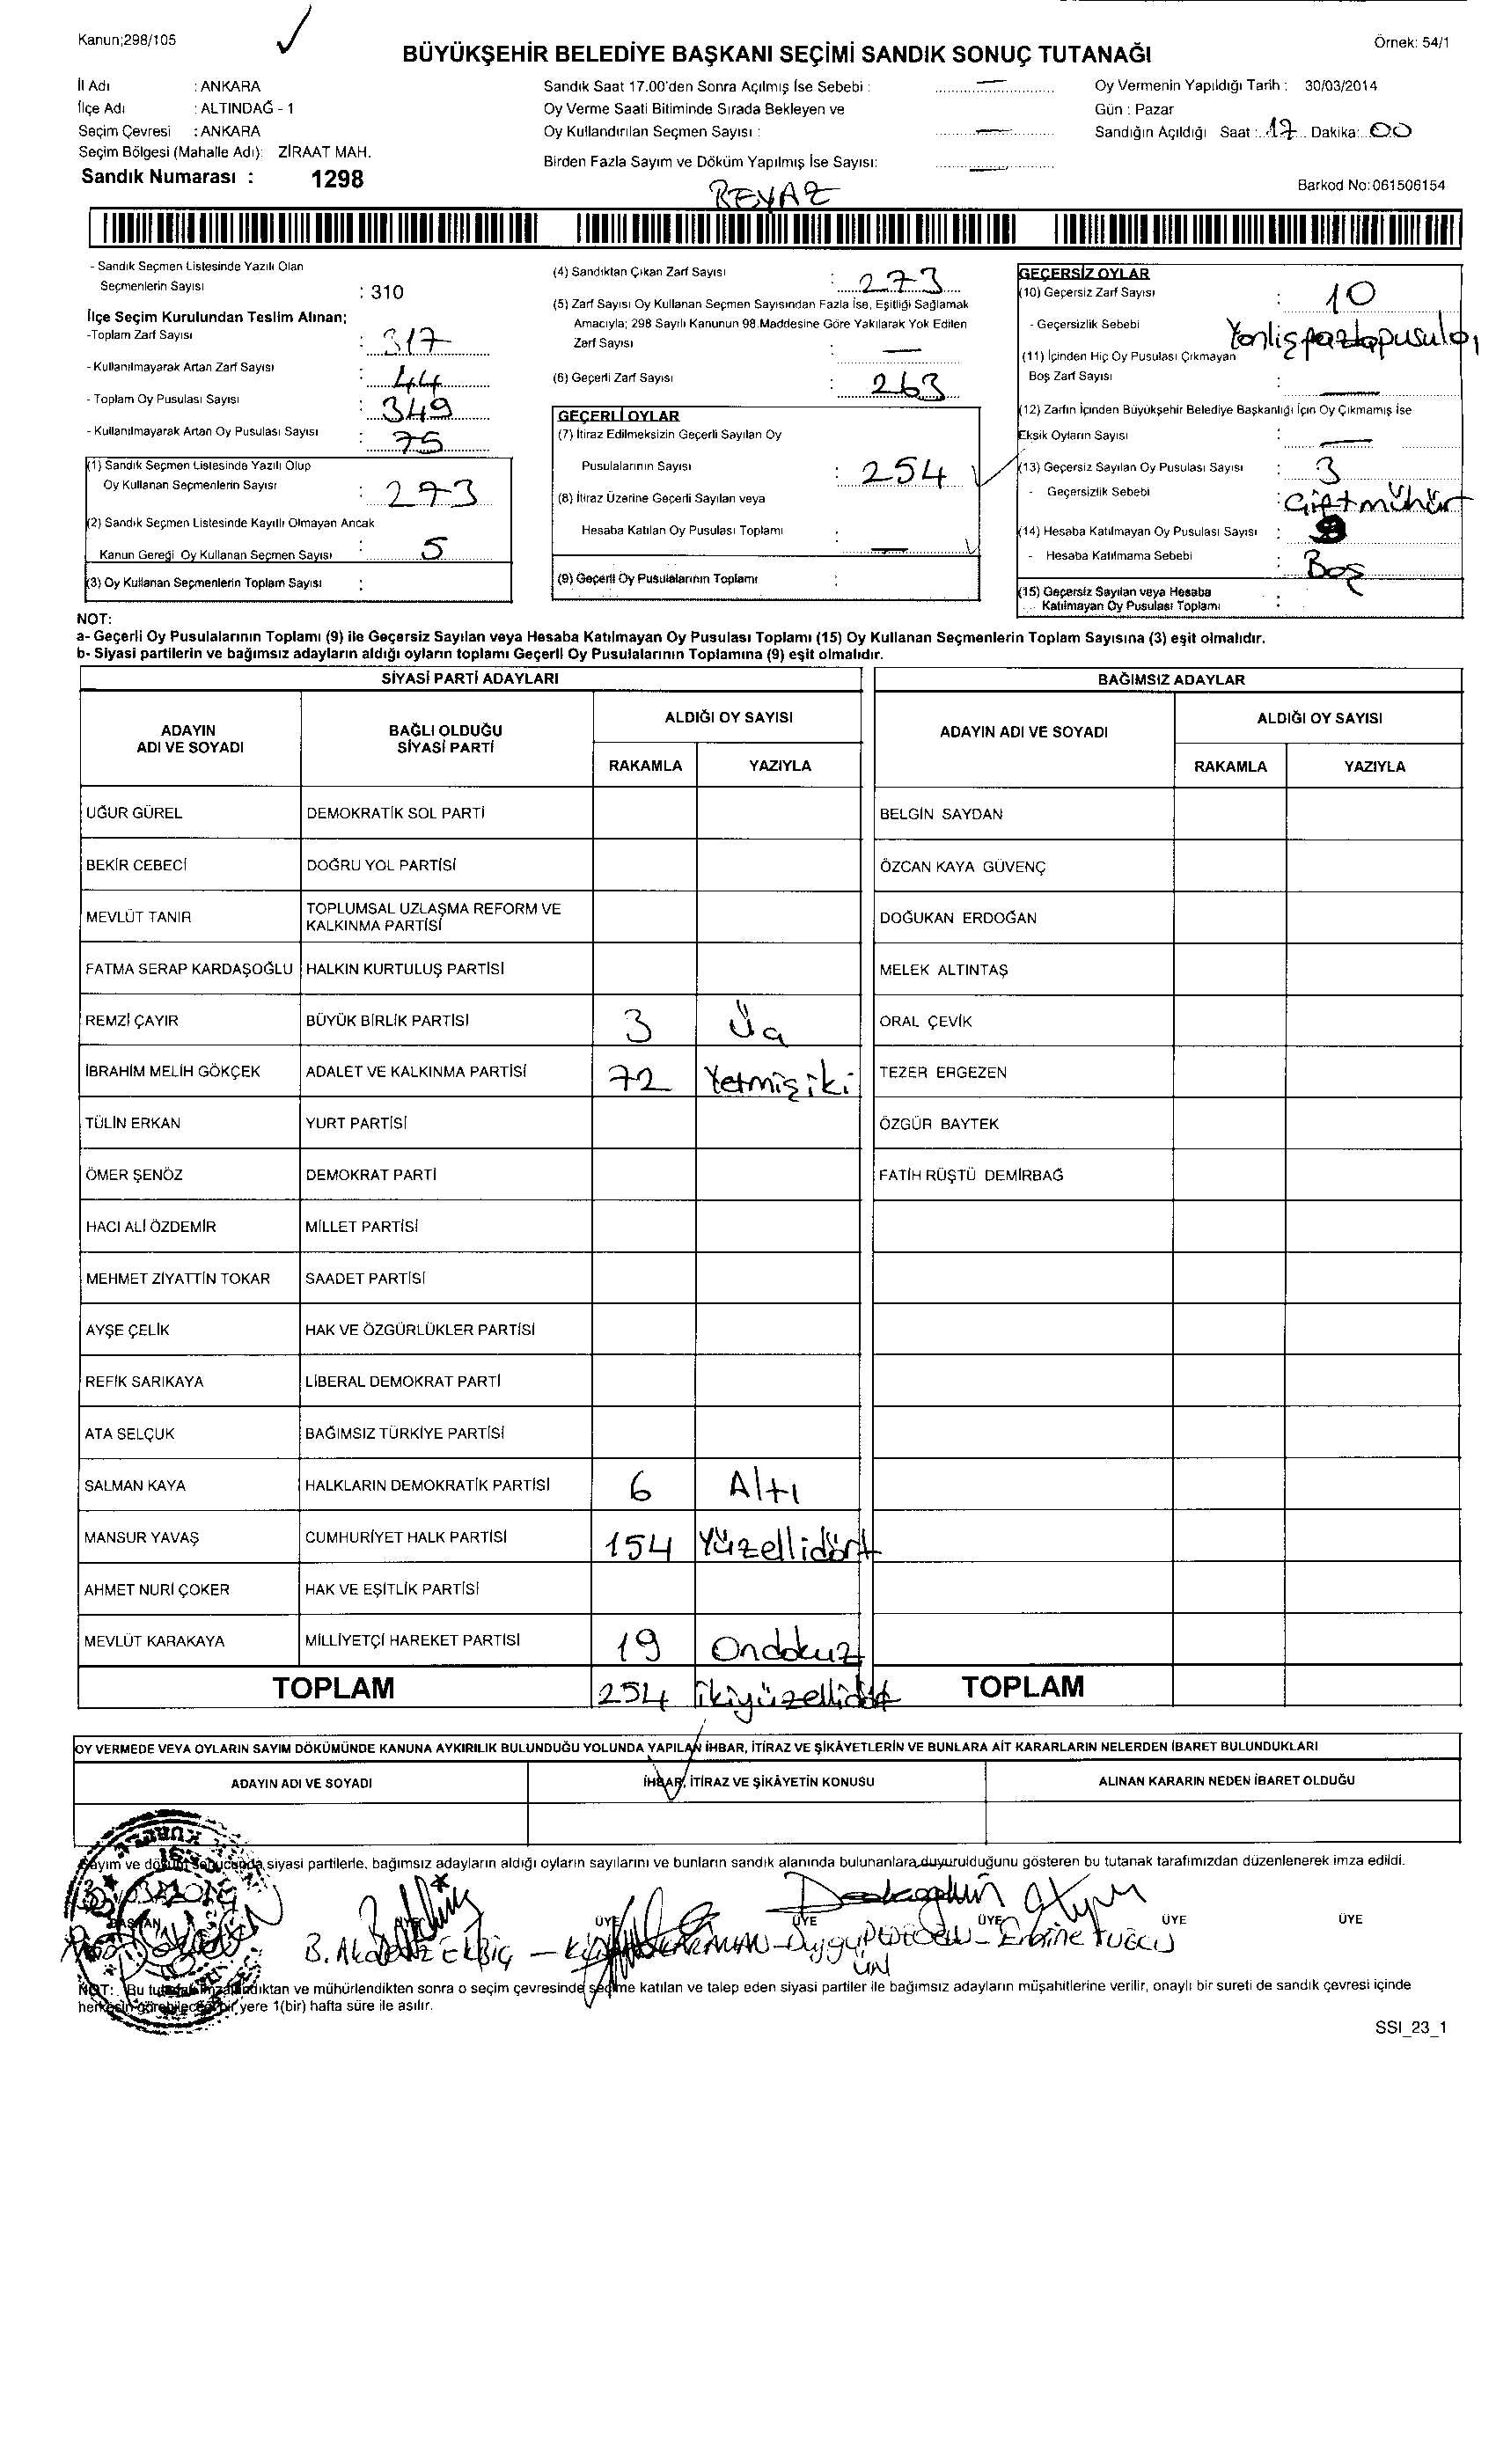 Kanun;298/105
Örnek: 54/1
BÜYÜKŞEHİR BELEDİYE BAŞKANI SEÇİMİ SANDIK SONUÇ TUTANAĞI
İl Adı : ANKARA
İlçe Adı : ALTINDAĞ - 1
Seçim Çevresi : ANKARA
Seçim Bölgesi (Mahalle Adı): ZİRAAT MAH.
Sandık Numarası : 1298
Sandık Saat 17.00'den Sonra Açılmış İse Sebebi : —
Oy Verme Saati Bitiminde Sırada Bekleyen ve
Oy Kullandırılan Seçmen Sayısı : —
Birden Fazla Sayım ve Döküm Yapılmış İse Sayısı: —
Oy Vermenin Yapıldığı Tarih : 30/03/2014
Gün : Pazar
Sandığın Açıldığı Saat : 17 Dakika: 00
Barkod No:061506154
BEYAZ
- Sandık Seçmen Listesinde Yazılı Olan
Seçmenlerin Sayısı : 310
İlçe Seçim Kurulundan Teslim Alınan;
-Toplam Zarf Sayısı : 317
- Kullanılmayarak Artan Zarf Sayısı : 44
- Toplam Oy Pusulası Sayısı : 349
- Kullanılmayarak Artan Oy Pusulası Sayısı : 75
(1) Sandık Seçmen Listesinde Yazılı Olup
Oy Kullanan Seçmenlerin Sayısı : 273
(2) Sandık Seçmen Listesinde Kayıtlı Olmayan Ancak
Kanun Gereği Oy Kullanan Seçmen Sayısı : 5
(3) Oy Kullanan Seçmenlerin Toplam Sayısı :
(4) Sandıktan Çıkan Zarf Sayısı : 273
(5) Zarf Sayısı Oy Kullanan Seçmen Sayısından Fazla İse, Eşitliği Sağlamak
Amacıyla; 298 Sayılı Kanunun 98.Maddesine Göre Yakılarak Yok Edilen
Zarf Sayısı : —
(6) Geçerli Zarf Sayısı : 263
GEÇERLİ OYLAR
(7) İtiraz Edilmeksizin Geçerli Sayılan Oy
Pusulalarının Sayısı : 254
(8) İtiraz Üzerine Geçerli Sayılan veya
Hesaba Katılan Oy Pusulası Toplamı : —
(9) Geçerli Oy Pusulalarının Toplamı :
GEÇERSİZ OYLAR
(10) Geçersiz Zarf Sayısı : 10
- Geçersizlik Sebebi
(11) İçinden Hiç Oy Pusulası Çıkmayan
Boş Zarf Sayısı : —
(12) Zarfın İçinden Büyükşehir Belediye Başkanlığı İçin Oy Çıkmamış İse
Eksik Oyların Sayısı : —
(13) Geçersiz Sayılan Oy Pusulası Sayısı : 3
- Geçersizlik Sebebi : Çift mühür
(14) Hesaba Katılmayan Oy Pusulası Sayısı :
- Hesaba Katılmama Sebebi : Boş
(15) Geçersiz Sayılan veya Hesaba
Katılmayan Oy Pusulası Toplamı :
NOT:
a- Geçerli Oy Pusulalarının Toplamı (9) ile Geçersiz Sayılan veya Hesaba Katılmayan Oy Pusulası Toplamı (15) Oy Kullanan Seçmenlerin Toplam Sayısına (3) eşit olmalıdır.
b- Siyasi partilerin ve bağımsız adayların aldığı oyların toplamı Geçerli Oy Pusulalarının Toplamına (9) eşit olmalıdır.
SİYASİ PARTİ ADAYLARI BAĞIMSIZ ADAYLAR
ADAYIN ADI VE SOYADI BAĞLI OLDUĞU SİYASİ PARTİ ALDIĞI OY SAYISI ADAYIN ADI VE SOYADI ALDIĞI OY SAYISI
RAKAMLA YAZIYLA RAKAMLA YAZIYLA
UĞUR GÜREL DEMOKRATİK SOL PARTİ BELGİN SAYDAN
BEKİR CEBECİ DOĞRU YOL PARTİSİ ÖZCAN KAYA GÜVENÇ
MEVLÜT TANIR TOPLUMSAL UZLAŞMA REFORM VE KALKINMA PARTİSİ DOĞUKAN ERDOĞAN
FATMA SERAP KARDAŞOĞLU HALKIN KURTULUŞ PARTİSİ MELEK ALTINTAŞ
REMZİ ÇAYIR BÜYÜK BİRLİK PARTİSİ 3 Üç ORAL ÇEVİK
İBRAHİM MELİH GÖKÇEK ADALET VE KALKINMA PARTİSİ 72 Yetmişiki TEZER ERGEZEN
TÜLİN ERKAN YURT PARTİSİ ÖZGÜR BAYTEK
ÖMER ŞENÖZ DEMOKRAT PARTİ FATİH RÜŞTÜ DEMİRBAĞ
HACI ALİ ÖZDEMİR MİLLET PARTİSİ
MEHMET ZİYATTİN TOKAR SAADET PARTİSİ
AYŞE ÇELİK HAK VE ÖZGÜRLÜKLER PARTİSİ
REFİK SARIKAYA LİBERAL DEMOKRAT PARTİ
ATA SELÇUK BAĞIMSIZ TÜRKİYE PARTİSİ
SALMAN KAYA HALKLARIN DEMOKRATİK PARTİSİ 6 Altı
MANSUR YAVAŞ CUMHURİYET HALK PARTİSİ 154 Yüzellidört
AHMET NURİ ÇOKER HAK VE EŞİTLİK PARTİSİ
MEVLÜT KARAKAYA MİLLİYETÇİ HAREKET PARTİSİ 19 Ondokuz
TOPLAM 254 İkiyüzellidört TOPLAM
OY VERMEDE VEYA OYLARIN SAYIM DÖKÜMÜNDE KANUNA AYKIRILIK BULUNDUĞU YOLUNDA YAPILAN İHBAR, İTİRAZ VE ŞİKÂYETLERİN VE BUNLARA AİT KARARLARIN NELERDEN İBARET BULUNDUKLARI
ADAYIN ADI VE SOYADI İHBAR, İTİRAZ VE ŞİKÂYETİN KONUSU ALINAN KARARIN NEDEN İBARET OLDUĞU
Sayım ve döküm sonucunda siyasi partilerle, bağımsız adayların aldığı oyların sayılarını ve bunların sandık alanında bulunanlara duyurulduğunu gösteren bu tutanak tarafımızdan düzenlenerek imza edildi.
BAŞKAN ÜYE ÜYE ÜYE ÜYE ÜYE ÜYE
NOT: Bu tutanak imzalandıktan ve mühürlendikten sonra o seçim çevresinde seçime katılan ve talep eden siyasi partiler ile bağımsız adayların müşahitlerine verilir, onaylı bir sureti de sandık çevresi içinde
herkesin görebileceği bir yere 1(bir) hafta süre ile asılır.
SSI_23_1